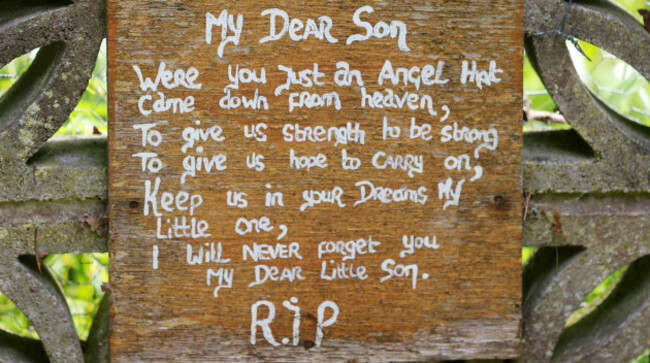 My Dear Son
Were you just an Angel that
came down from heaven,
To give us strength to be strong
To give us hope to carry on,
Keep us in your Dreams My
Little one,
I Will Never forget you
My Dear Little Son.
R.i.P